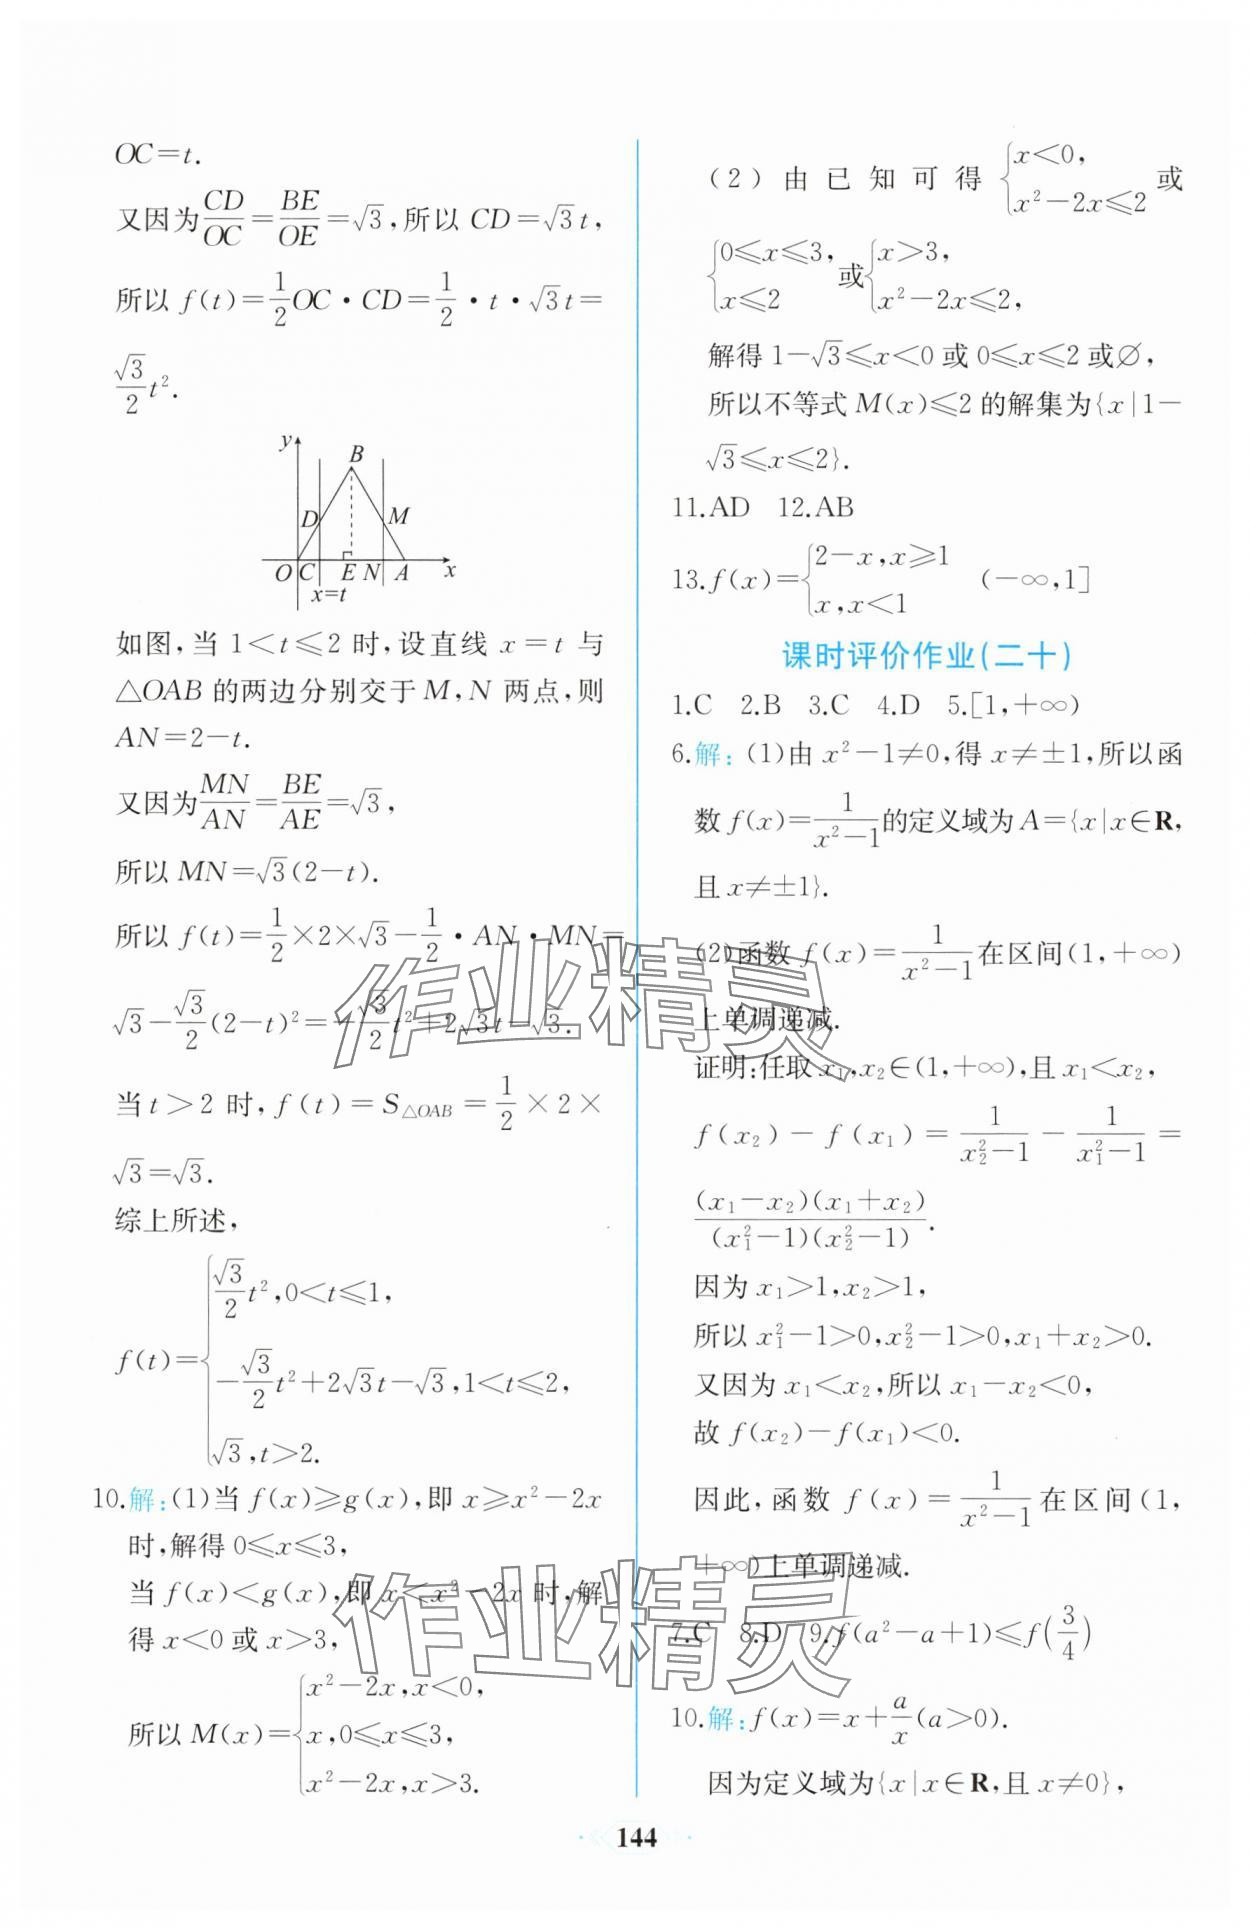 OC=t.
又因为CD/OC=BE/OE=√3,所以 CD=√3t,
所以 f(t)=1/2OC·CD=1/2·t·√3t=
√3/2t².
y
B
D
M
O C E N A x
x=t
如图,当 1<t≤2 时,设直线 x=t 与
△OAB 的两边分别交于 M,N 两点,则
AN=2-t.
又因为MN/AN=BE/AE=√3,
所以 MN=√3(2-t).
所以 f(t)=1/2×2×√3-1/2·AN·MN=
√3-√3/2(2-t)²=-√3/2t²+2√3t-√3.
当 t>2 时,f(t)=S△OAB=1/2×2×
√3=√3.
综上所述,
f(t)={√3/2t²,0<t≤1,
-√3/2t²+2√3t-√3,1<t≤2,
√3,t>2.
10.解:(1)当 f(x)≥g(x),即 x≥x²-2x
时,解得 0≤x≤3,
当 f(x)<g(x),即 x<x²-2x 时,解
得 x<0 或 x>3,
所以 M(x)={x²-2x,x<0,
x,0≤x≤3,
x²-2x,x>3.
(2)由已知可得{x<0,
x²-2x≤2 或
{0≤x≤3,
x≤2 或{x>3,
x²-2x≤2,
解得 1-√3≤x<0 或 0≤x≤2 或∅,
所以不等式 M(x)≤2 的解集为{x|1-
√3≤x≤2}.
11.AD 12.AB
13.f(x)={2-x,x≥1
x,x<1 (-∞,1]
课时评价作业(二十)
1.C 2.B 3.C 4.D 5.[1,+∞)
6.解:(1)由 x²-1≠0,得 x≠±1,所以函
数 f(x)=1/(x²-1)的定义域为 A={x|x∈R,
且 x≠±1}.
(2)函数 f(x)=1/(x²-1)在区间(1,+∞)
上单调递减.
证明:任取 x₁,x₂∈(1,+∞),且 x₁<x₂,
f(x₂)-f(x₁)=1/(x₂²-1)-1/(x₁²-1)=
(x₁-x₂)(x₁+x₂)/((x₁²-1)(x₂²-1)).
因为 x₁>1,x₂>1,
所以 x₁²-1>0,x₂²-1>0,x₁+x₂>0.
又因为 x₁<x₂,所以 x₁-x₂<0,
故 f(x₂)-f(x₁)<0.
因此,函数 f(x)=1/(x²-1)在区间(1,
+∞)上单调递减.
7.C 8.D 9.f(a²-a+1)≤f(3/4)
10.解:f(x)=x+a/x(a>0).
因为定义域为{x|x∈R,且 x≠0},
144
作业精灵
作业精灵